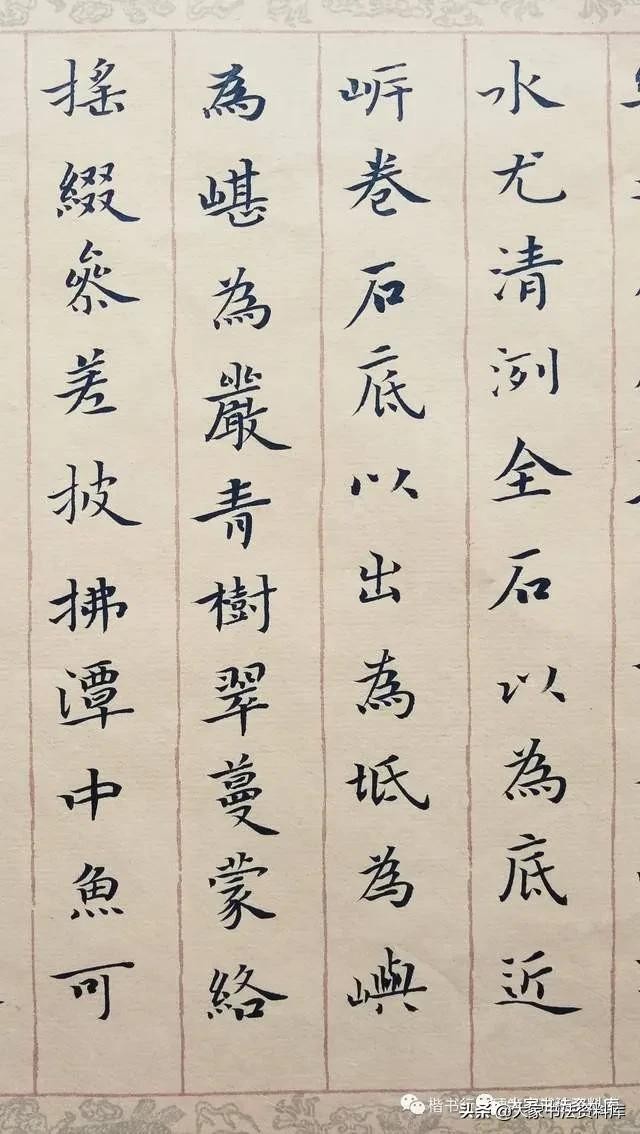 水尤清洌全石以為底近
岸卷石底以出為坻為嶼
為嵁為巖青樹翠蔓蒙絡
搖綴參差披拂潭中魚可
头条 @大家书法资料库